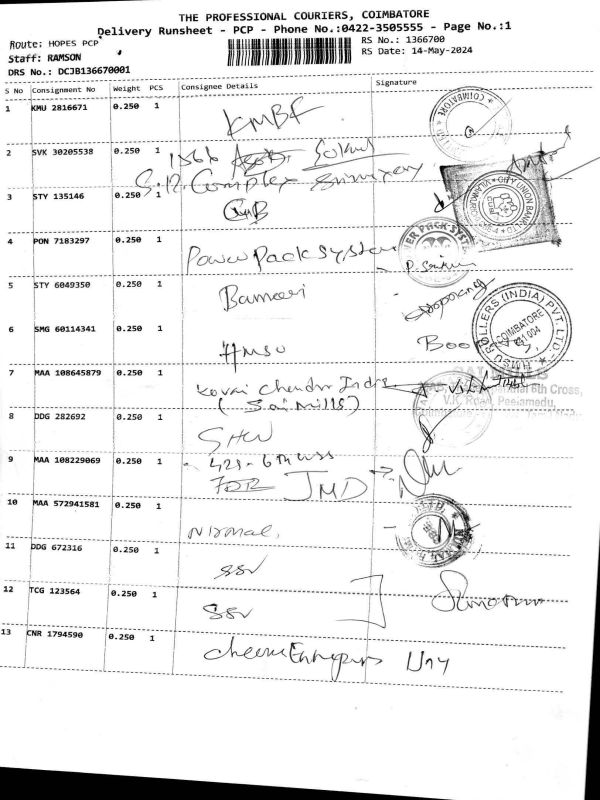 THE PROFESSIONAL COURIERS, COIMBATORE
Delivery Runsheet - PCP - Phone No.:0422-3505555 - Page No.:1
Route: HOPES PCP
RS No.: 1366700
Staff: RAMSON
RS Date: 14-May-2024
DRS No.: DCJB136670001
S No Consignment No Weight PCS Consignee Details Signature
1 KMU 2816671 0.250 1 KMBF
COIMBATORE
2 SVK 30205538 0.250 1 1566
S.R. Complex
3 STY 135146 0.250 1
CITY UNION BANK
4 PON 7183297 0.250 1 Power Pack System
5 STY 6049350 0.250 1
6 SMG 60114341 0.250 1 HMSU
HMSU ROLLERS (INDIA) PVT. LTD.
COIMBATORE
7 MAA 108645879 0.250 1 Kovai Chendur India
(Sai Mills)
6th Cross,
V.K. Road, Peelamedu,
8 DDG 282692 0.250 1
9 MAA 108229069 0.250 1
JMD
10 MAA 572941581 0.250 1 Nirmal,
11 DDG 672316 0.250 1 SSV
12 TCG 123564 0.250 1 SSV
13 CNR 1794590 0.250 1